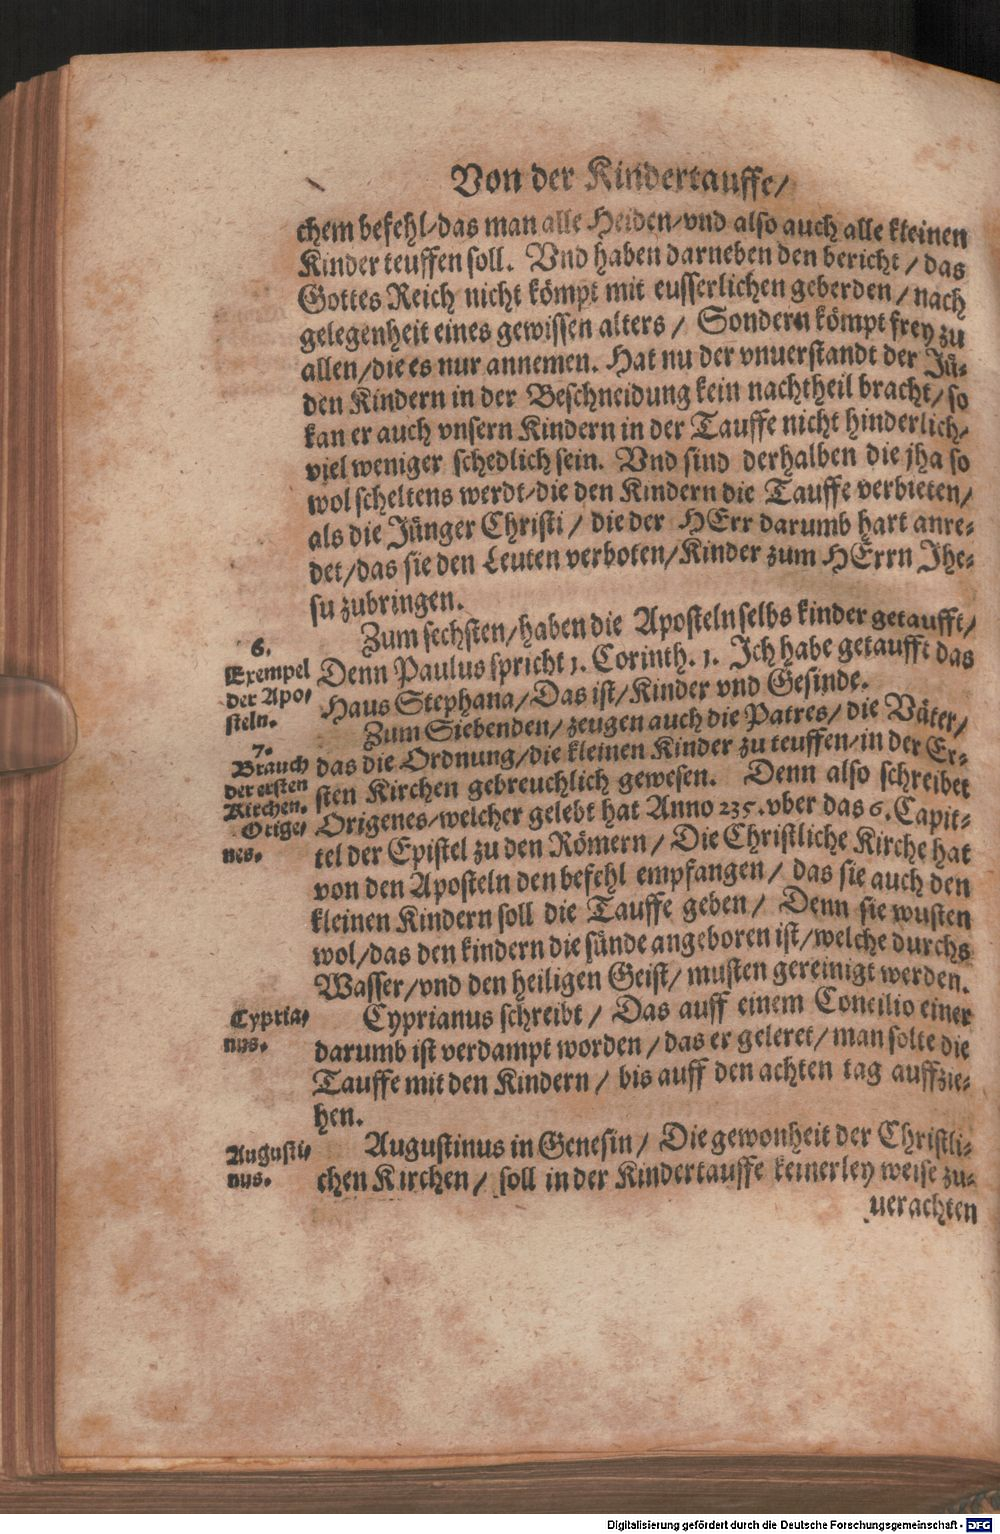 Von der Kindertauffe/
chem befehl/das man alle Heiden/vnd also auch alle kleinen
Kinder teuffen soll. Vnd haben darneben den bericht / das
Gottes Reich nicht kömpt mit eusserlichen geberden / nach
gelegenheit eines gewissen alters / Sondern kömpt frey zu
allen/die es nur annemen. Hat nu der vnuerstandt der Jü-
den Kindern in der Beschneidung kein nachtheil bracht/ so
kan er auch vnsern Kindern in der Tauffe nicht hinderlich/
viel weniger schedlich sein. Vnd sind derhalben die jha so
wol scheltens werdt/die den Kindern die Tauffe verbieten/
als die Jünger Christi / die der HErr darumb hart anre-
det/das sie den Leuten verboten/Kinder zum HErrn Jhe-
su zubringen.
6.
Exempel
der Apo-
steln.
Zum sechsten/haben die Aposteln selbs kinder getaufft/
Denn Paulus spricht 1. Corinth. 1. Ich habe getaufft das
Haus Stephana/Das ist/Kinder vnd Gesinde.
7.
Brauch
der ersten
Kirchen.
Orige-
nes.
Zum Siebenden/ zeugen auch die Patres/ die Väter/
das die Ordnung/die kleinen Kinder zu teuffen/in der Er-
sten Kirchen gebreuchlich gewesen. Denn also schreibet
Origenes/welcher gelebt hat Anno 235. vber das 6. Capit-
tel der Epistel zu den Römern / Die Christliche Kirche hat
von den Aposteln den befehl empfangen / das sie auch den
kleinen Kindern soll die Tauffe geben / Denn sie wusten
wol/das den kindern die sünde angeboren ist/welche durchs
Wasser/vnd den heiligen Geist/ musten gereinigt werden.
Cypria-
nus.
Cyprianus schreibt / Das auff einem Concilio einer
darumb ist verdampt worden / das er geleret / man solte die
Tauffe mit den Kindern / bis auff den achten tag auffzie-
hen.
Augusti-
nus.
Augustinus in Genesin / Die gewonheit der Christli-
chen Kirchen / soll in der Kindertauffe keinerley weise zu-
uerachten
Digitalisierung gefördert durch die Deutsche Forschungsgemeinschaft - DFG